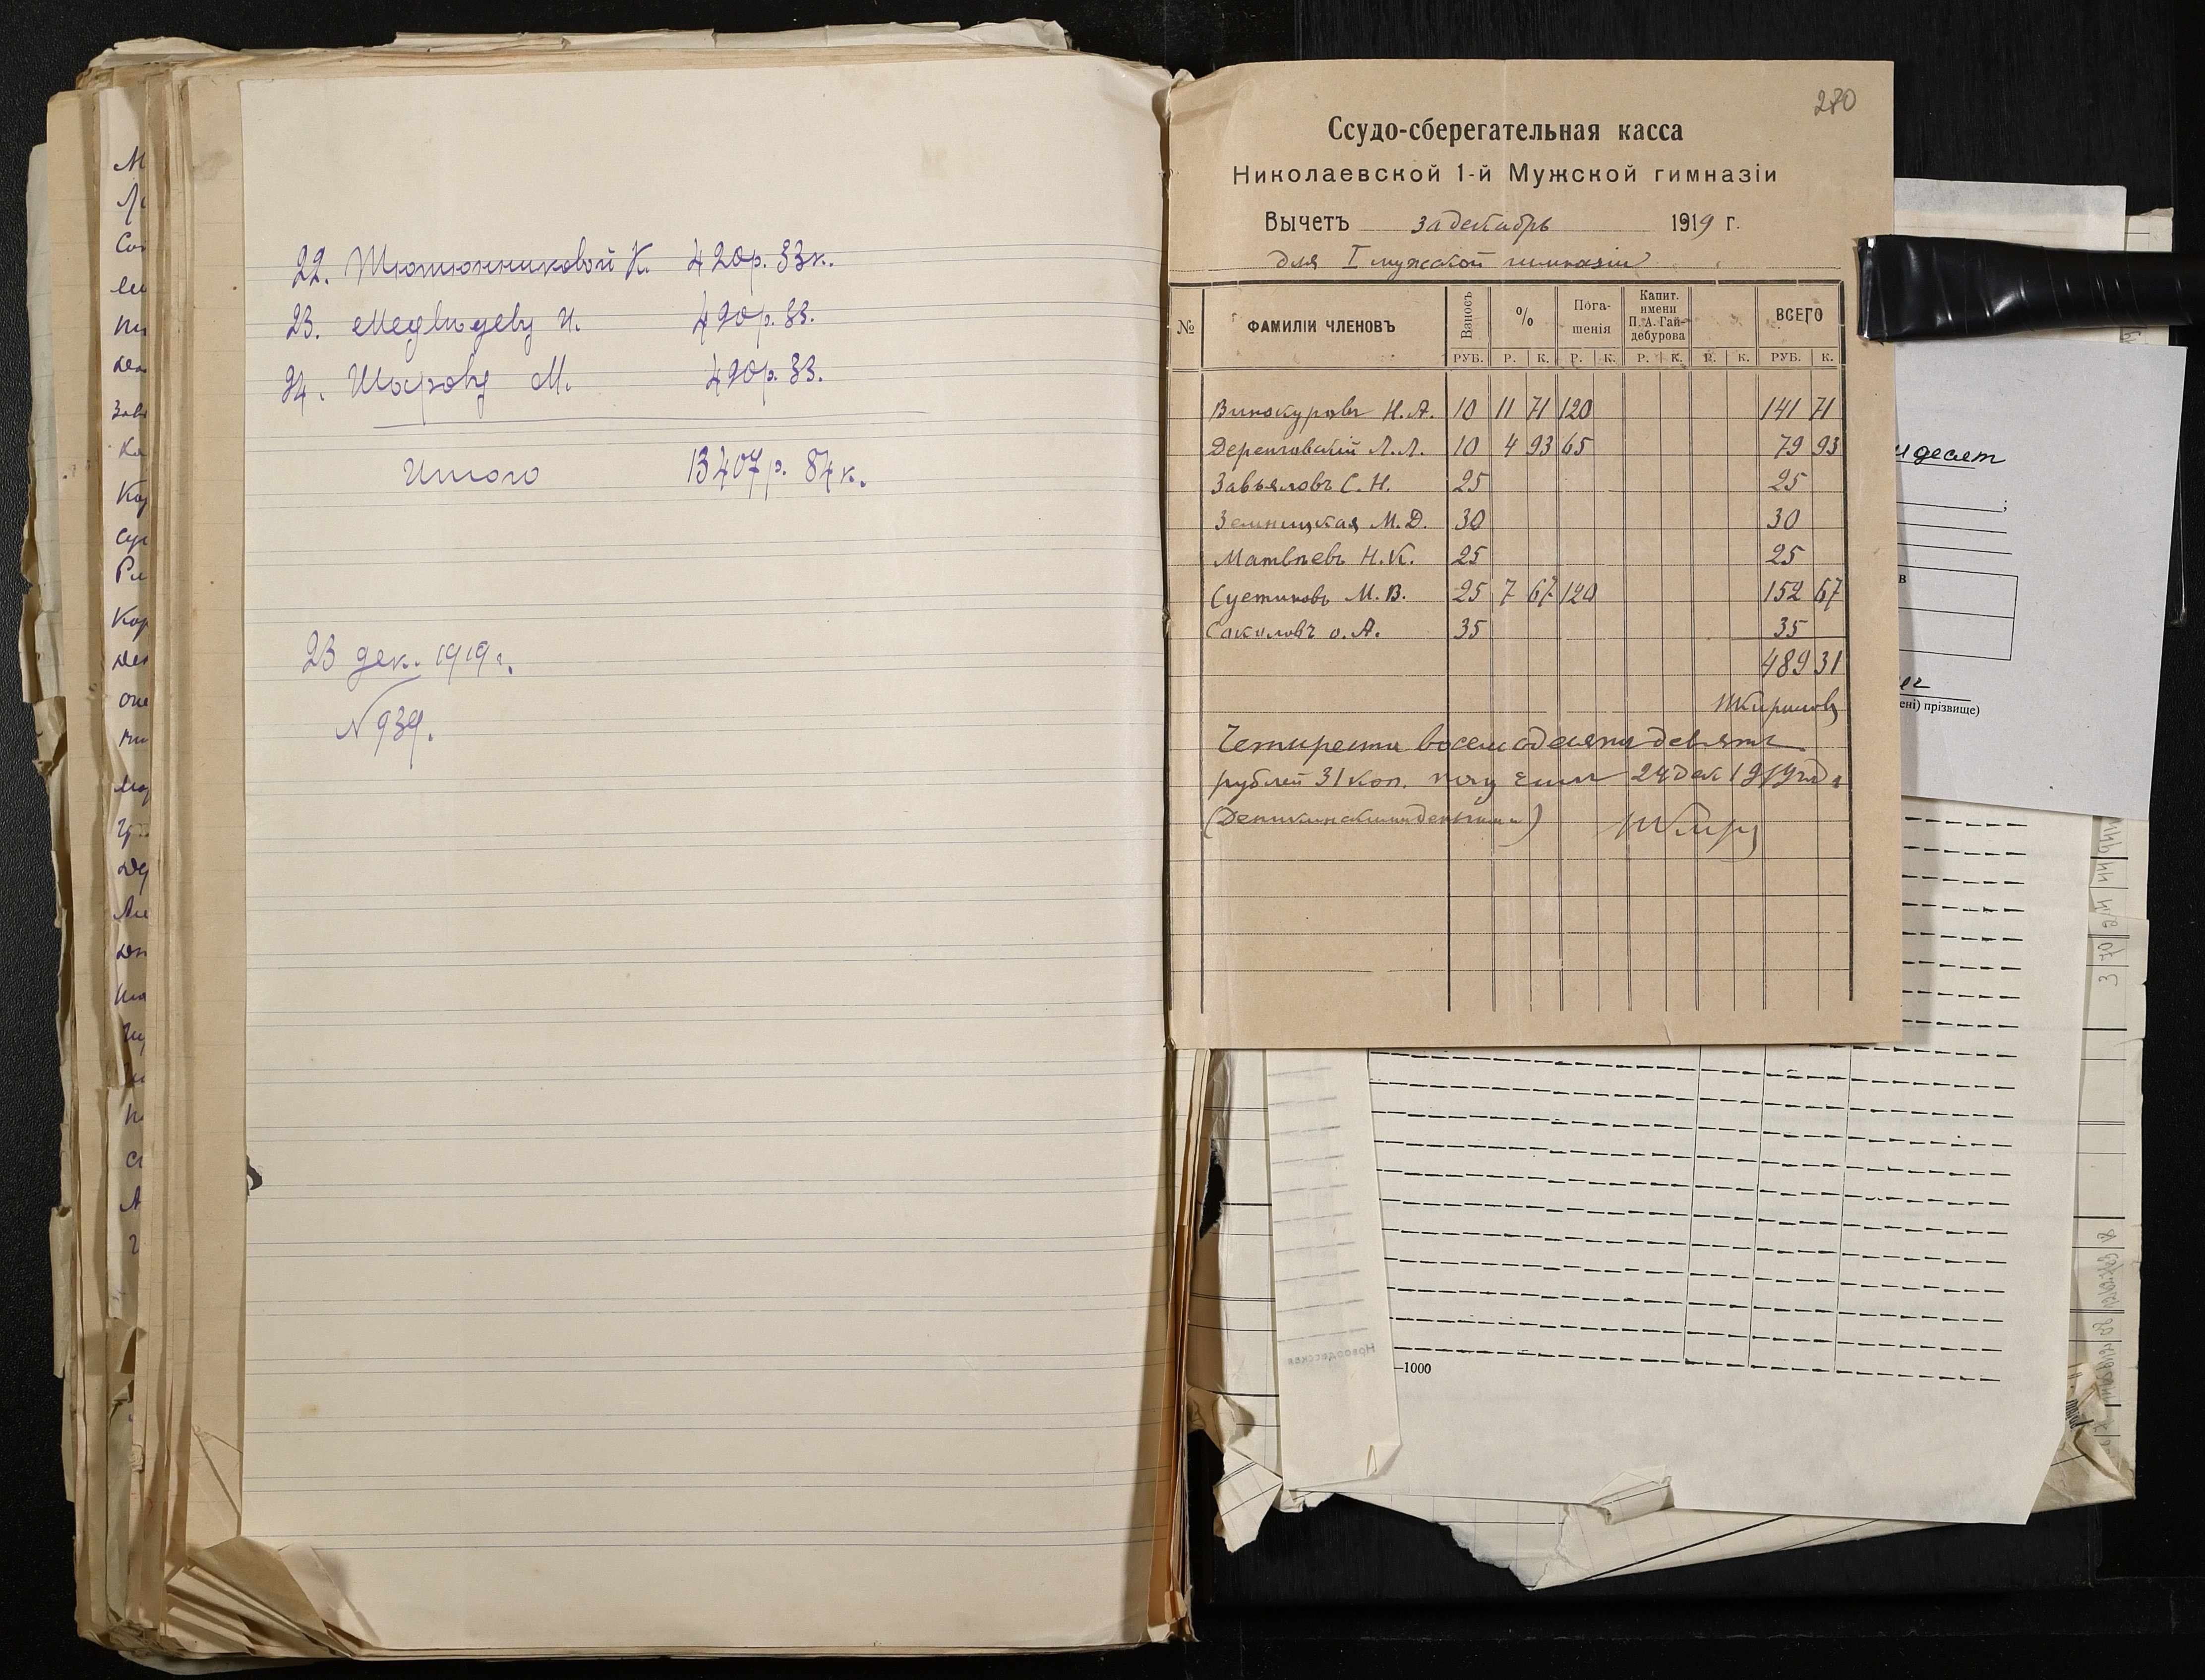 22. Тютюнниковой К. 420р. 83к.
23. Медведеву И. 420р. 83.
24. Шарову М. 420р. 83.
Итого 13407р. 84к.
23 дек. 1919г.
№ 939.
270
Ссудо-сберегательная касса
Николаевской 1-й Мужской гимназіи
Вычетъ за декабрь 1919 г.
для I мужской гимназіи
№ ФАМИЛІИ ЧЛЕНОВЪ Взносъ % Пога-шенія Капит. имени П. А. Гай-дебурова ВСЕГО
РУБ. Р. К. Р. К. Р. К. Р. К. РУБ. К.
Винокуровъ Н. А. 10 11 71 120 141 71
Деренговскій Л. Л. 10 4 93 65 79 93
Завьяловъ С. Н. 25 25
Земницкая М. Д. 30 30
Матвѣевъ Н. К. 25 25
Суетиновъ М. В. 25 7 67 120 152 67
Соколовъ о. А. 35 35
489 31
Четыреста восемьдесятъ девять
рублей 31 коп. 24 дек 1919 года
(Деникинскими деньгами)
идесят
в
ені) прізвище)
—1000